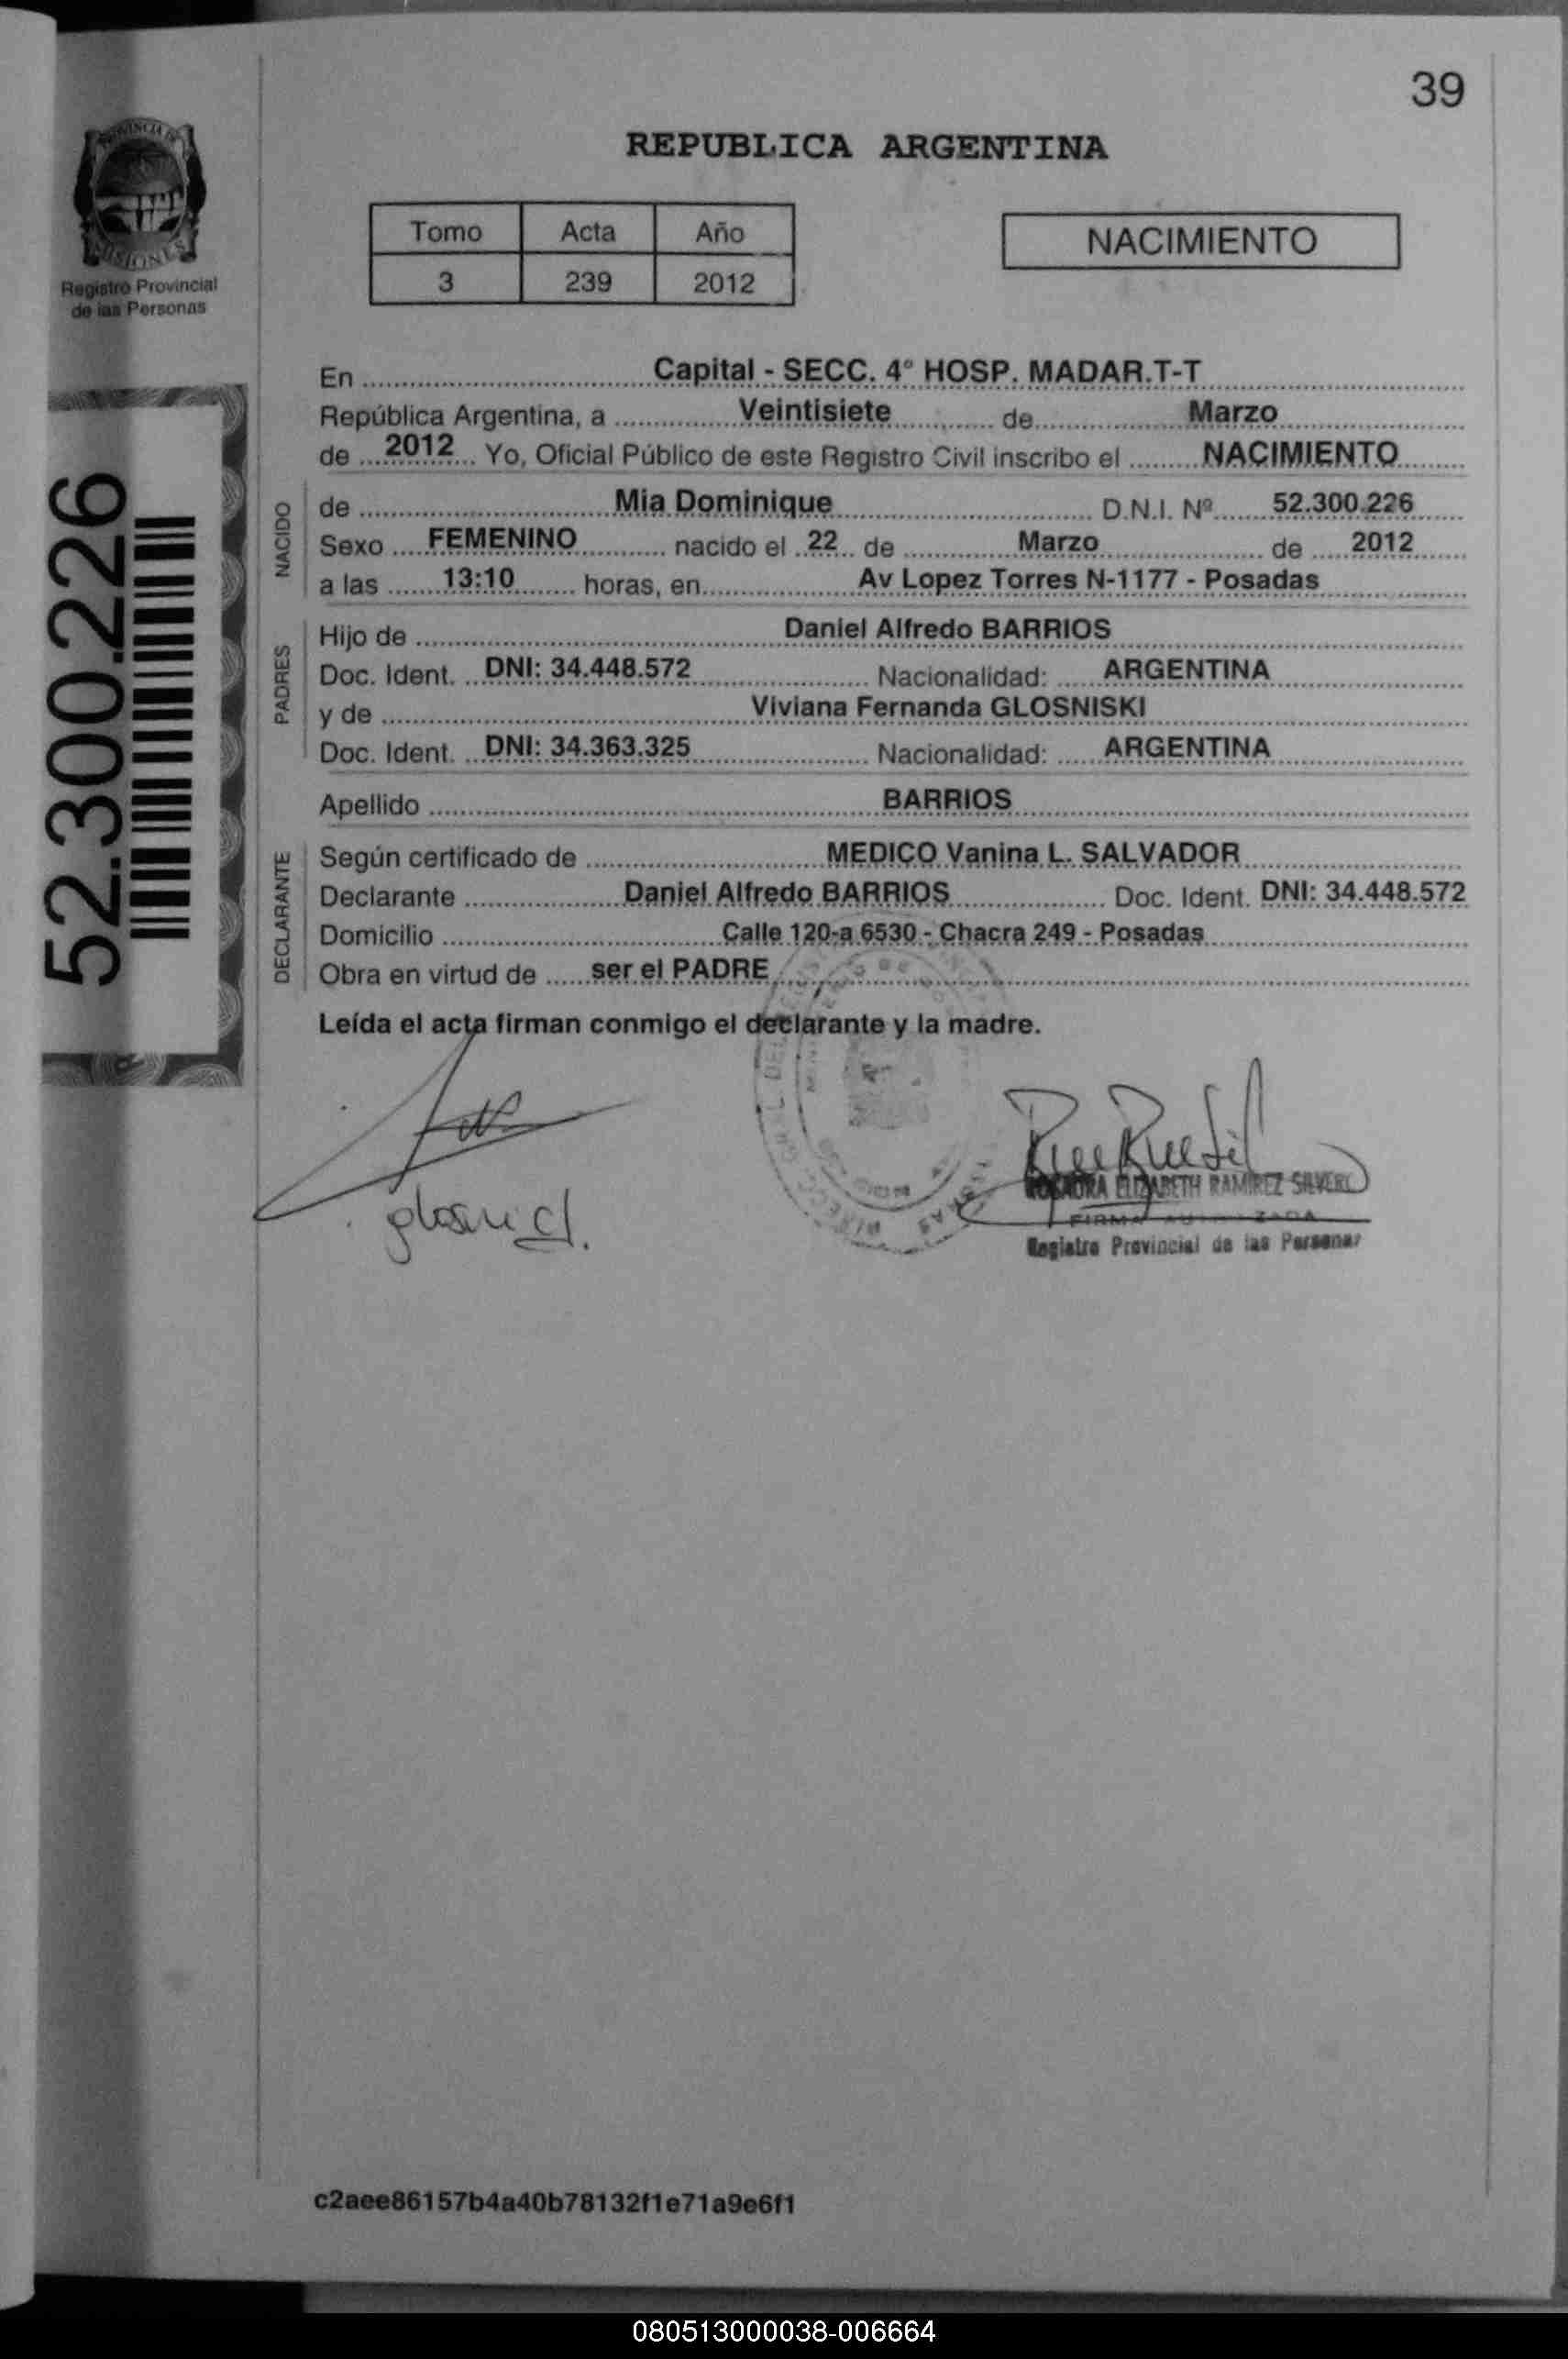 39
PROVINCIA DE
MISIONES
Registro Provincial
de las Personas
REPUBLICA ARGENTINA
Tomo Acta Año
3 239 2012
NACIMIENTO
52.300.226
En Capital - SECC. 4º HOSP. MADAR.T-T
República Argentina, a Veintisiete de Marzo
de 2012 Yo, Oficial Público de este Registro Civil inscribo el NACIMIENTO
NACIDO
de Mia Dominique D.N.I. Nº 52.300.226
Sexo FEMENINO nacido el 22 de Marzo de 2012
a las 13:10 horas, en Av Lopez Torres N-1177 - Posadas
PADRES
Hijo de Daniel Alfredo BARRIOS
Doc. Ident. DNI: 34.448.572 Nacionalidad: ARGENTINA
y de Viviana Fernanda GLOSNISKI
Doc. Ident. DNI: 34.363.325 Nacionalidad: ARGENTINA
Apellido BARRIOS
DECLARANTE
Según certificado de MEDICO Vanina L. SALVADOR
Declarante Daniel Alfredo BARRIOS Doc. Ident. DNI: 34.448.572
Domicilio Calle 120-a 6530 - Chacra 249 - Posadas
Obra en virtud de ser el PADRE
Leída el acta firman conmigo el declarante y la madre.
ELIZABETH RAMIREZ
Registro Provincial de las Personas
c2aee86157b4a40b78132f1e71a9e6f1
080513000038-006664